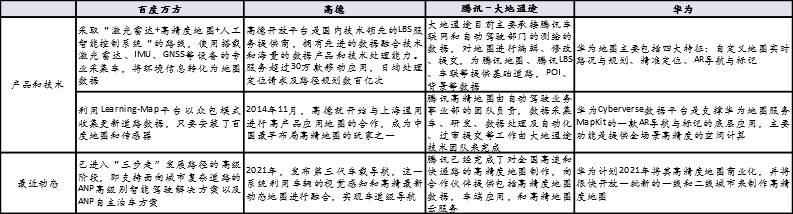 百度万方
高德
腾讯-大地通途
华为
产品和技术
采取“激光雷达+高精度地图+人工
智能控制系统“的路线，使用搭载
激光雷达、IMU、GNSS等设备的专
业采集车，将环境信息转化为地图
数据
高德开放平台是国内技术领先的LBS服
务提供商，拥有先进的数据融合技术
和海量的数据产品和技术处理能力。
服务超过30万款移动应用，日均处理
定位请求及路径规划数百亿次
大地通途目前主要承接腾讯车
联网和自动驾驶部门的测绘的
数据，对地图进行编辑、修改
、提交，为腾讯地图、腾讯LBS
、车联等提供基础道路，POI、
背景等数据
华为地图主要包括四大特征：自定义地图实时
路况与规划、精准定位、AR导航与标记
利用Learning-Map平台以众包模式
收集更新道路数据，只要安装了百
度地图和传感器
2014年11月，高德就开始与上海通用
进行高产品应用地图的合作，成为中
国最早布局高精地图的玩家之一
腾讯高精地图由自动驾驶业务
事业部的团队负责，数据采集
车、研发、数据处理及自动化
、过审提交等工作由大地通途
技术团队来完成
华为Cyberverse数据平台是支撑华为地图服务
MapKit的一款AR导航与标记的底层应用，主要
功能是提供全场景高精度的空间计算
最近动态
已进入“三步走”发展路径的高级
阶段，即支持面向城市复杂道路的
ANP高级别智能驾驶解决方案以及
ANP自主泊车方案
2021年，发布第三代车载导航，这一
系统利用车辆的视觉感知和高精最新
动态地图进行融合，实现车道级导航
腾讯已经完成了对全国高速和
快速道路的高精地图制作，向
合作伙伴提供包括高精度地图
数据，车端应用，和高精地图
云服务
华为计划2021年将其高精度地图商业化，并将
很快开放一批新的一线和二线城市来制作高精
度地图